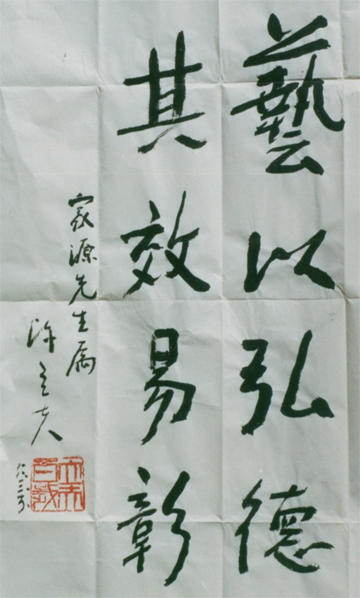 藝以弘德
其效易彰
家源先生属
陳立夫